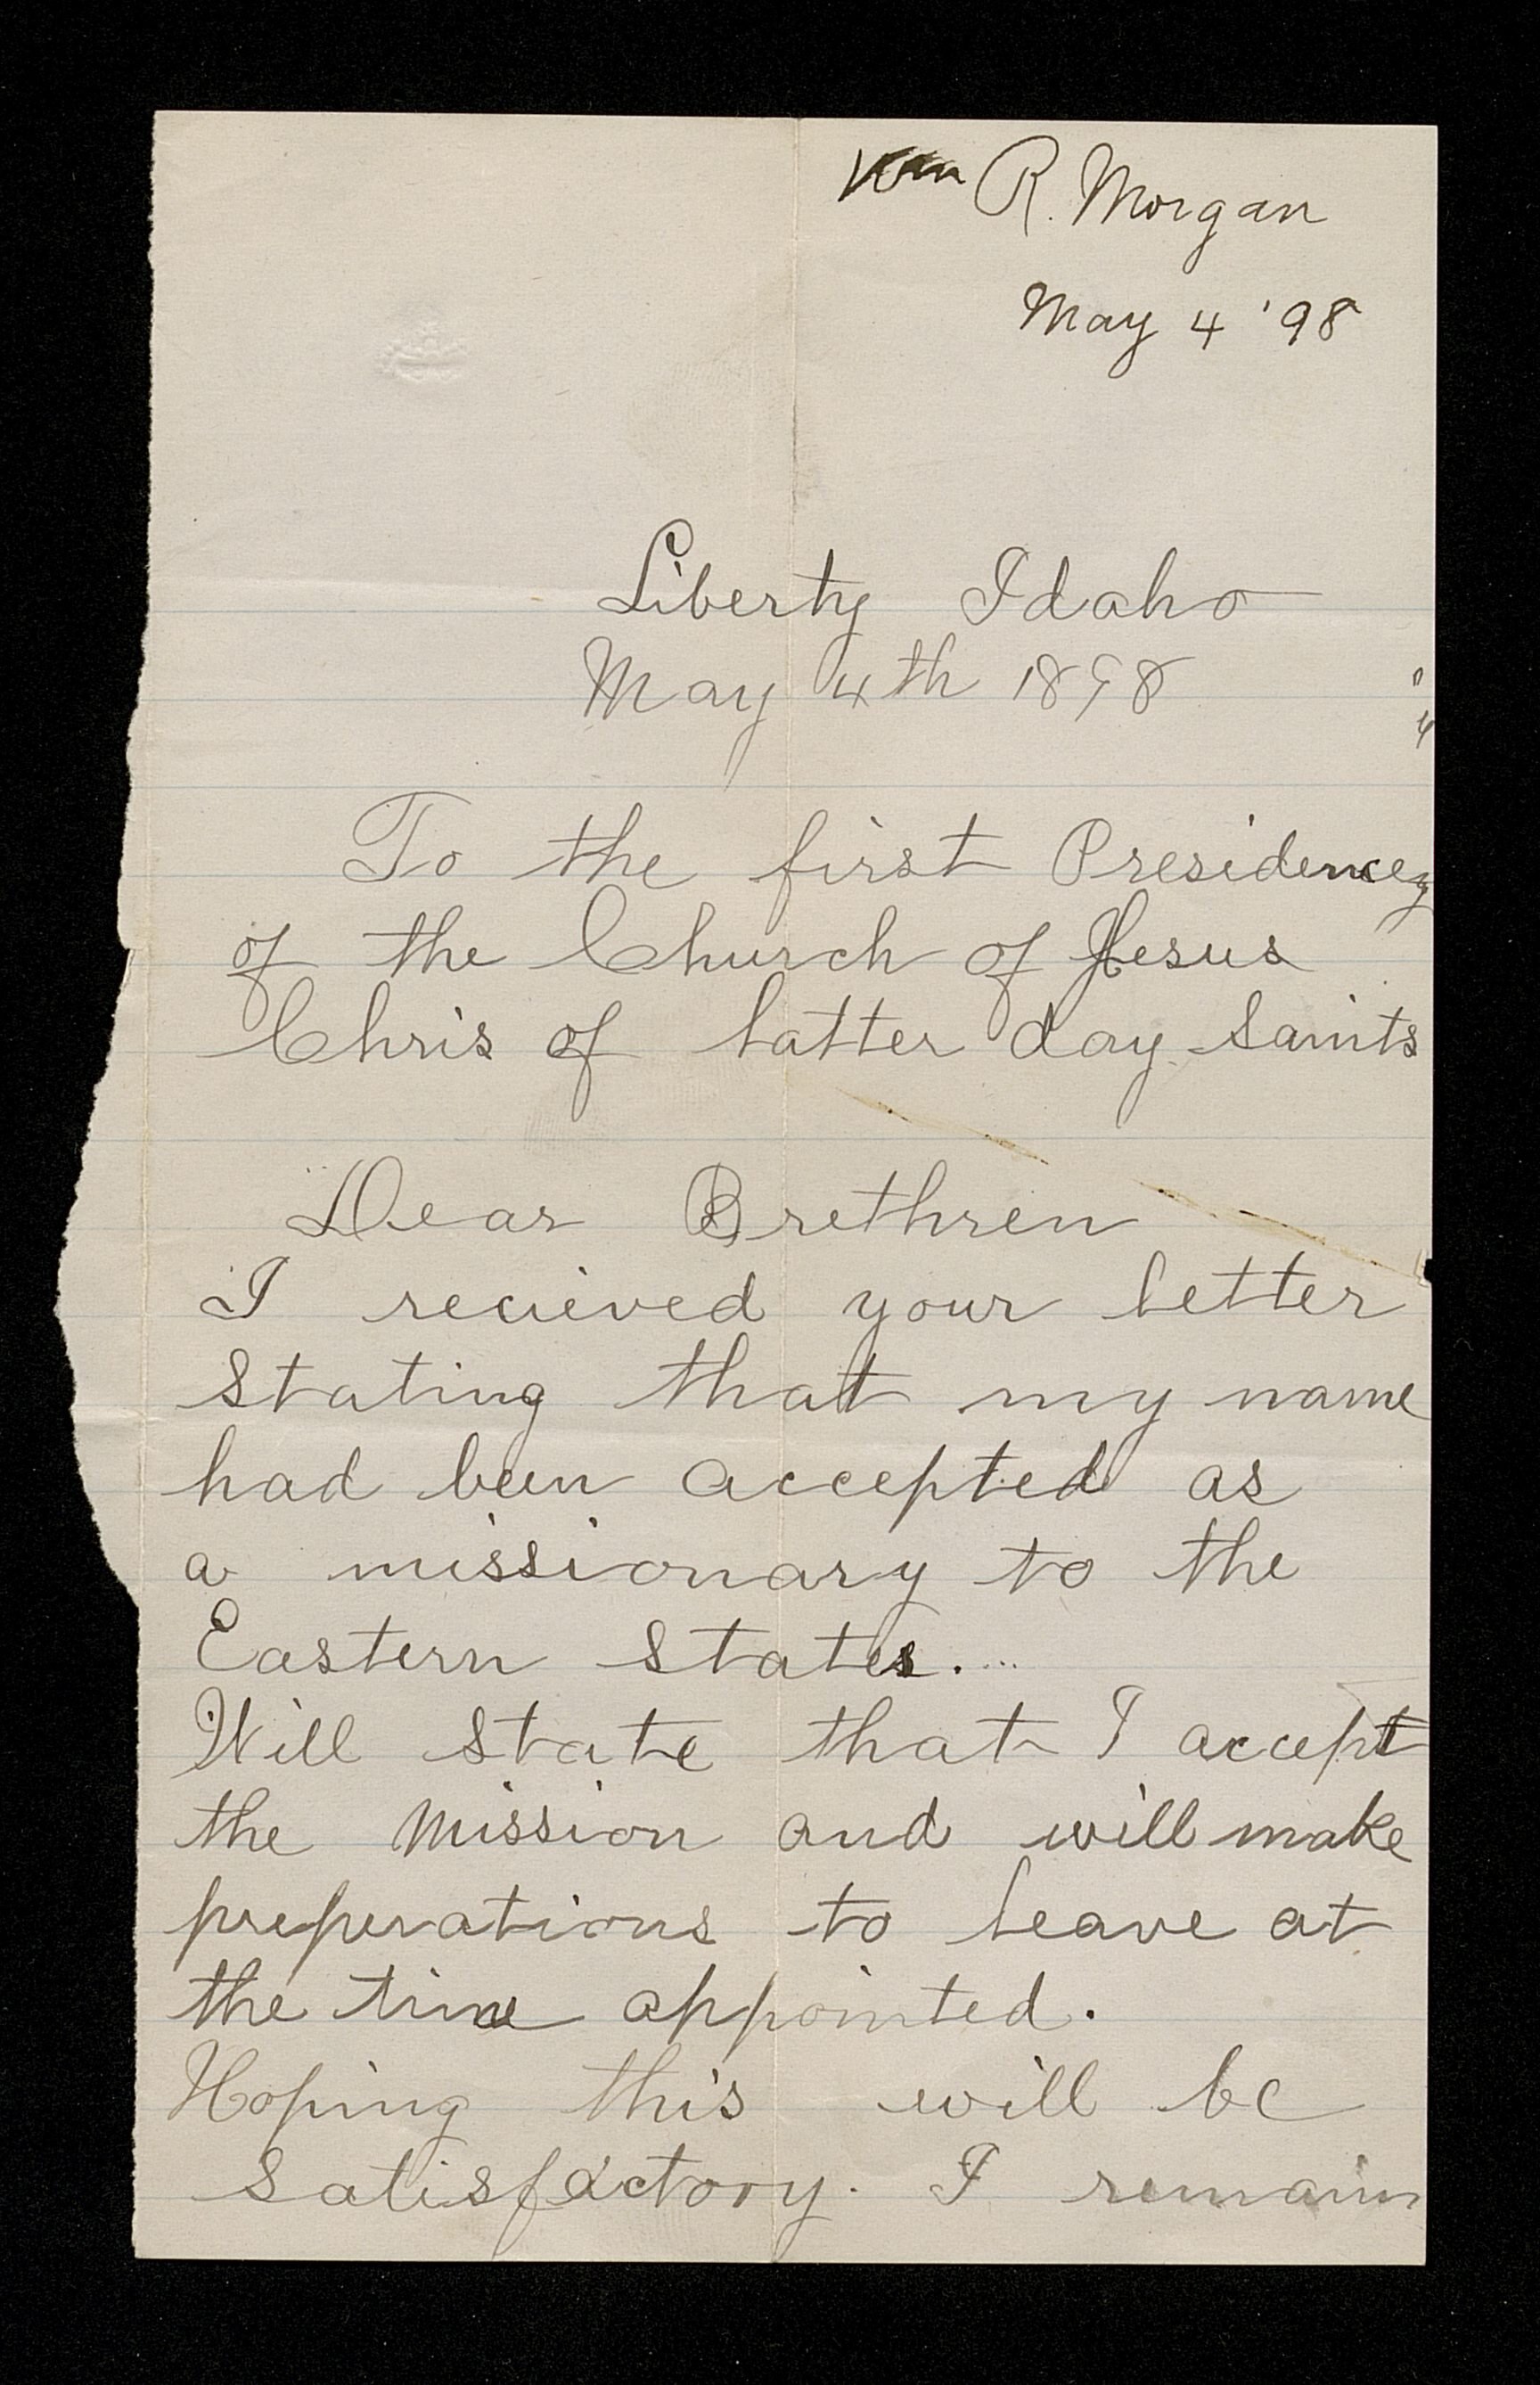 Wm R. Morgan
May 4 '98
Liberty Idaho
May 4th 1898
To the first Presidencey
of the Church of Jesus
Chris of latter day Saints
Dear Brethren
I recieved your letter
stating that my name
had been accepted as
a missionary to the
Eastern States.
Will state that I accept
the Mission and will make
preperations to leave at
the time appointed.
Hoping this will be
satisfactory. I remain